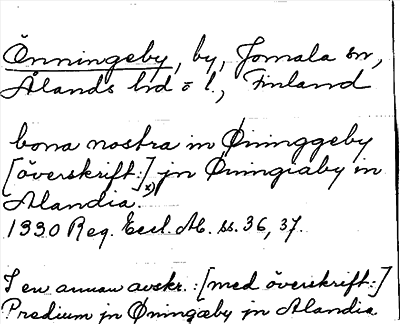 Önningeby, by, Jomala sn,
Ålands hd o l., Finland
bona nostra in Øninggeby
[överskrift:] x) jn Öningiaby in
Alandia.
1330 Reg. Eccl. Ab. ss. 36, 37.
I en annan avskr.: [med överskrift:]
Predium jn Øningæby jn Alandia